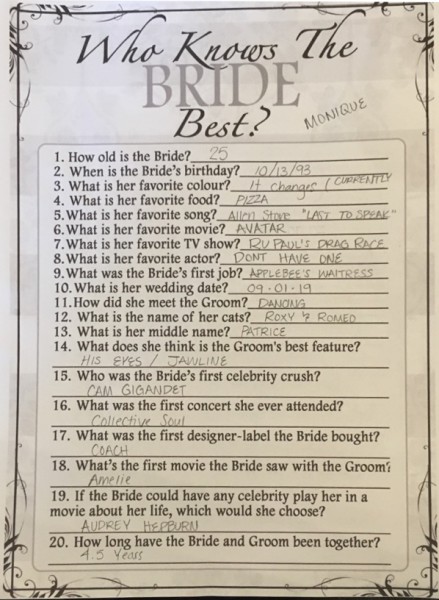 Who Knows The
BRIDE
Best?
MONIQUE
1. How old is the Bride? 25
2. When is the Bride's birthday? 10/13/93
3. What is her favorite colour? It changes / CURRENTLY
4. What is her favorite food? PIZZA
5. What is her favorite song? Allen Stone "LAST TO SPEAK"
6. What is her favorite movie? AVATAR
7. What is her favorite TV show? RU PAUL'S DRAG RACE
8. What is her favorite actor? DONT HAVE ONE
9. What was the Bride's first job? APPLEBEE'S WAITRESS
10. What is her wedding date? 09.01.19
11. How did she meet the Groom? DANCING
12. What is the name of her cats? ROXY & ROMEO
13. What is her middle name? PATRICE
14. What does she think is the Groom's best feature?
HIS EYES / JAWLINE
15. Who was the Bride's first celebrity crush?
CAM GIGANDET
16. What was the first concert she ever attended?
Collective Soul
17. What was the first designer-label the Bride bought?
COACH
18. What's the first movie the Bride saw with the Groom?
Amelie
19. If the Bride could have any celebrity play her in a
movie about her life, which would she choose?
AUDREY HEPBURN
20. How long have the Bride and Groom been together?
4.5 Years